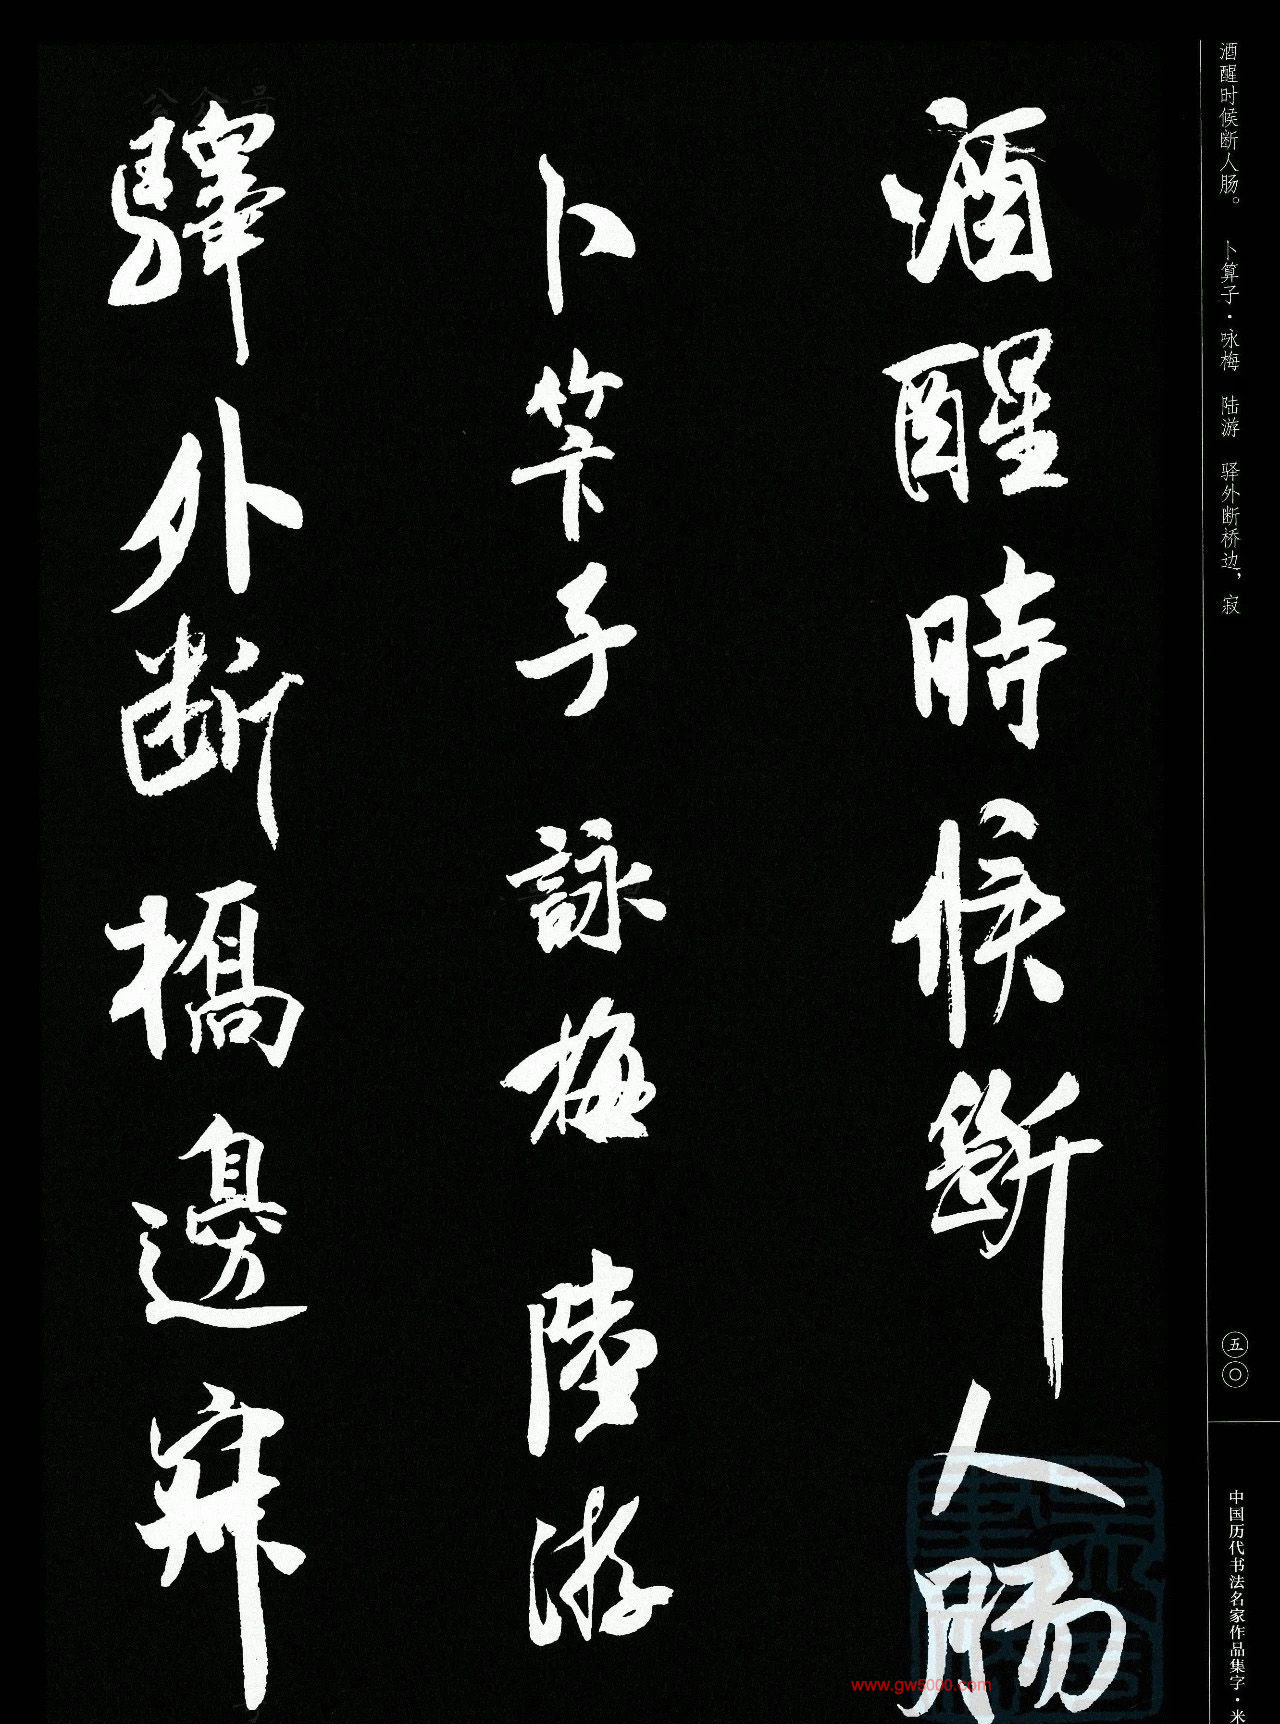 酒醒时候断人肠。　卜算子·咏梅　陆游　驿外断桥边，寂
五〇
中国历代书法名家作品集字·米
酒醒時候斷人肠
卜笇子 詠梅 陸游
驛外断橋邊寂
www.gw5000.com